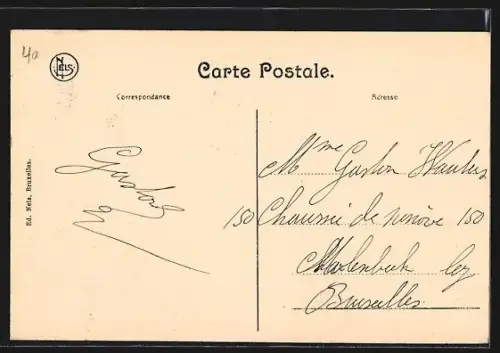 40
NELS
Carte Postale.
Correspondance
Adresse
Ed. Nels, Bruxelles.
Gaston
W
Mme Gaston Wauters
150 Chaussée de ninove 150
Molenbeek lez
Bruxelles